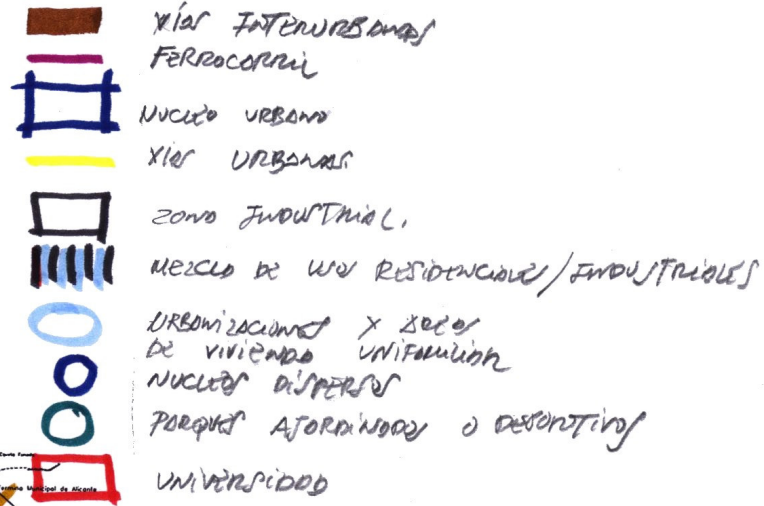 VÍAS INTERURBANAS
FERROCARRIL
NUCLEO URBANO
VÍAS URBANAS
ZONA INDUSTRIAL.
MEZCLA DE USOS RESIDENCIALES/INDUSTRIALES
URBANIZACIONES Y AREAS
DE VIVIENDA UNIFAMILIAR
NUCLEOS DISPERSOS
PARQUES AJARDINADOS O DEPORTIVOS
UNIVERSIDAD
Termino Municipal de Alicante